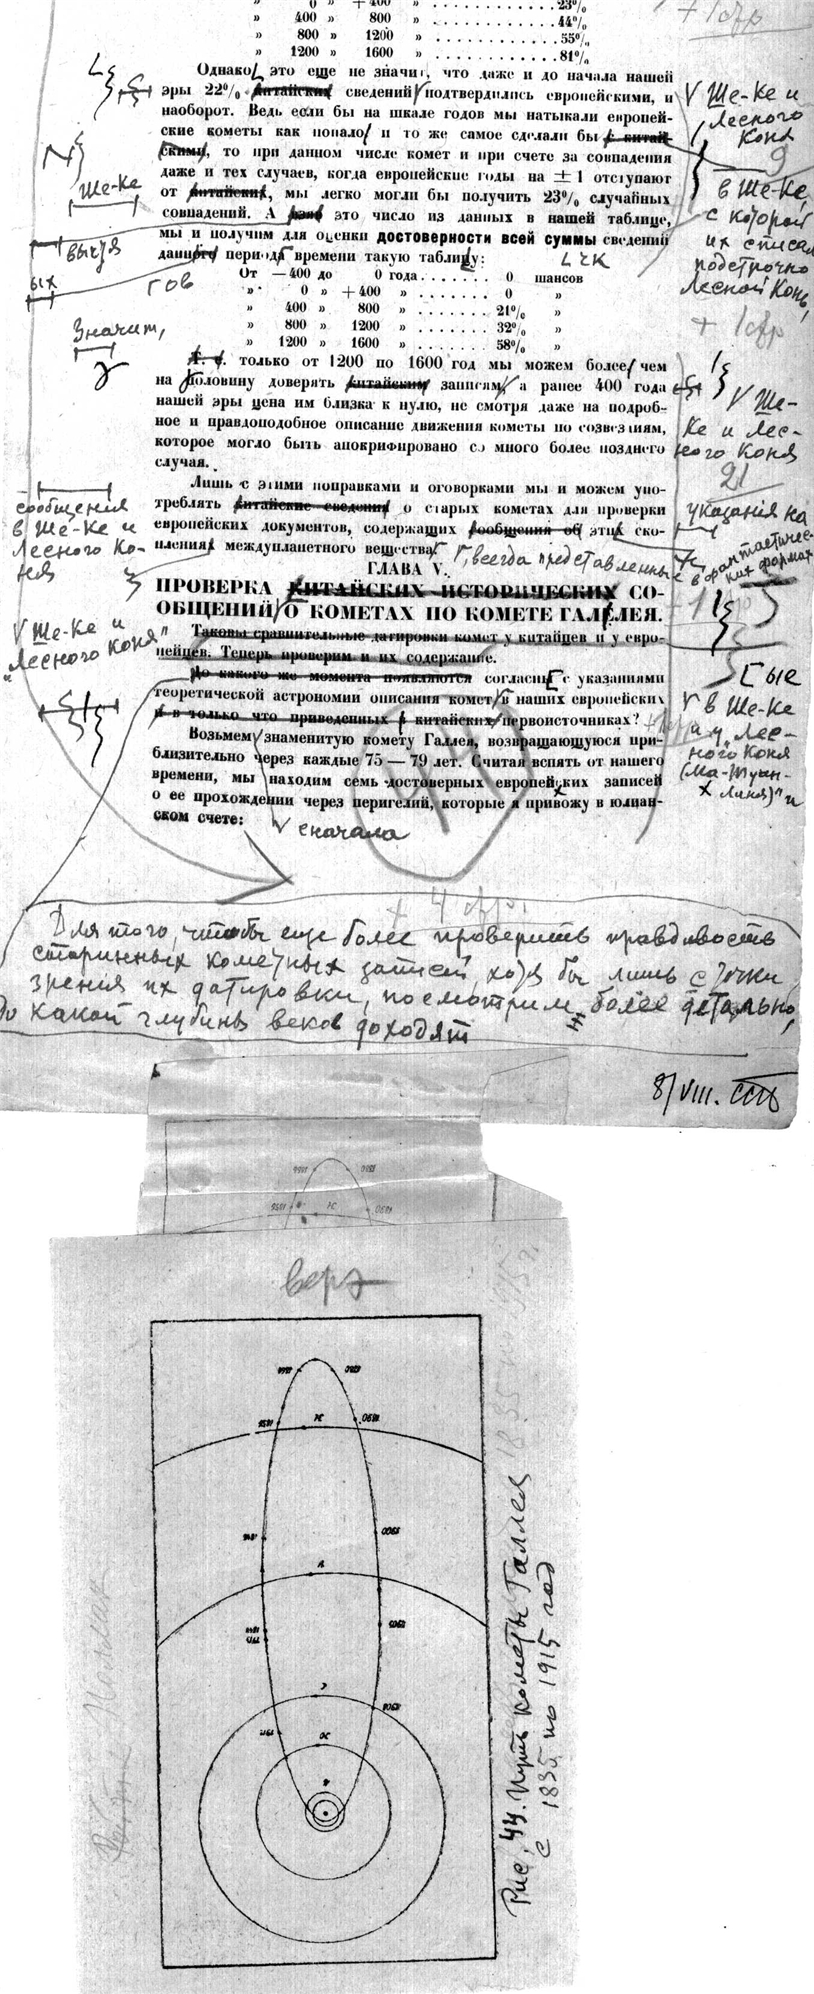 » 0 » +400 » . . . . . . . . . . 23%
» 400 » 800 » . . . . . . . . . . 44%
» 800 » 1200 » . . . . . . . . . . 55%
» 1200 » 1600 » . . . . . . . . . . 81%
Однако, это еще не значит, что даже и до начала нашей
эры 22% китайских сведений подтвердились европейскими, и
наоборот. Ведь если бы на шкале годов мы натыкали европей-
ские кометы как попало и то же самое сделали бы с китай-
скими, то при данном числе комет и при счете за совпадения
даже и тех случаев, когда европейские годы на ± 1 отступают
от китайских, мы легко могли бы получить 23% случайных
совпадений. А это число из данных в нашей таблице,
мы и получим для оценки достоверности всей суммы сведений
данного периода времени такую таблицу:
От —400 до 0 года . . . . . . . 0 шансов
» 0 » +400 » . . . . . . . 0 »
» 400 » 800 » . . . . . . . 21% »
» 800 » 1200 » . . . . . . . 32% »
» 1200 » 1600 » . . . . . . . 58% »
Т. е. только от 1200 по 1600 год мы можем более чем
на половину доверять китайским записям, а ранее 400 года
нашей эры цена им близка к нулю, не смотря даже на подроб-
ное и правдоподобное описание движения кометы по созвездиям,
которое могло быть апокрифировано со много более позднего
случая.
Лишь с этими поправками и оговорками мы и можем упо-
треблять китайские сведения о старых кометах для проверки
европейских документов, содержащих сообщения об этих ско-
плениях междупланетного вещества.
ГЛАВА V.
ПРОВЕРКА КИТАЙСКИХ ИСТОРИЧЕСКИХ СО-
ОБЩЕНИЙ О КОМЕТАХ ПО КОМЕТЕ ГАЛЛЕЯ.
Таковы сравнительные датировки комет у китайцев и у евро-
пейцев. Теперь проверим и их содержание.
До какого же момента появляются согласные с указаниями
теоретической астрономии описания комет в наших европейских
и в только что приведенных китайских первоисточниках?
Возьмем знаменитую комету Галлея, возвращающуюся при-
близительно через каждые 75 — 79 лет. Считая вспять от нашего
времени, мы находим семь достоверных европейских записей
о ее прохождении через перигелий, которые я привожу в юлиан-
ском счете:
Ше-Ке
вычтя
ых
гов
Значит,
сообщения
в Ше-Ке и
Лесного Ко-
ня
Ше-Ке и
"Лесного Коня"
Ше-Ке и
Лесного
Коня
9
в Ше-Ке,
с которой
их списал
подстрочно
Лесной Конь,
Ше-
Ке и Лес-
ного Коня
21
указания на
, всегда представленные
в фантастичес-
ких формах
ые
в Ше-Ке
и у Лес-
ного Коня
(Ма-Туан-
Линя)" и
сначала
Для того, чтобы еще более проверить правдивость
старинных кометных записей, хотя бы лишь с точки
зрения их датировки, посмотрим более детально,
до какой глубины веков доходят
8/VIII.
верх
Рис. 44. Путь кометы Галлея
с 1835 по 1915 год
1835 по 1915 г.